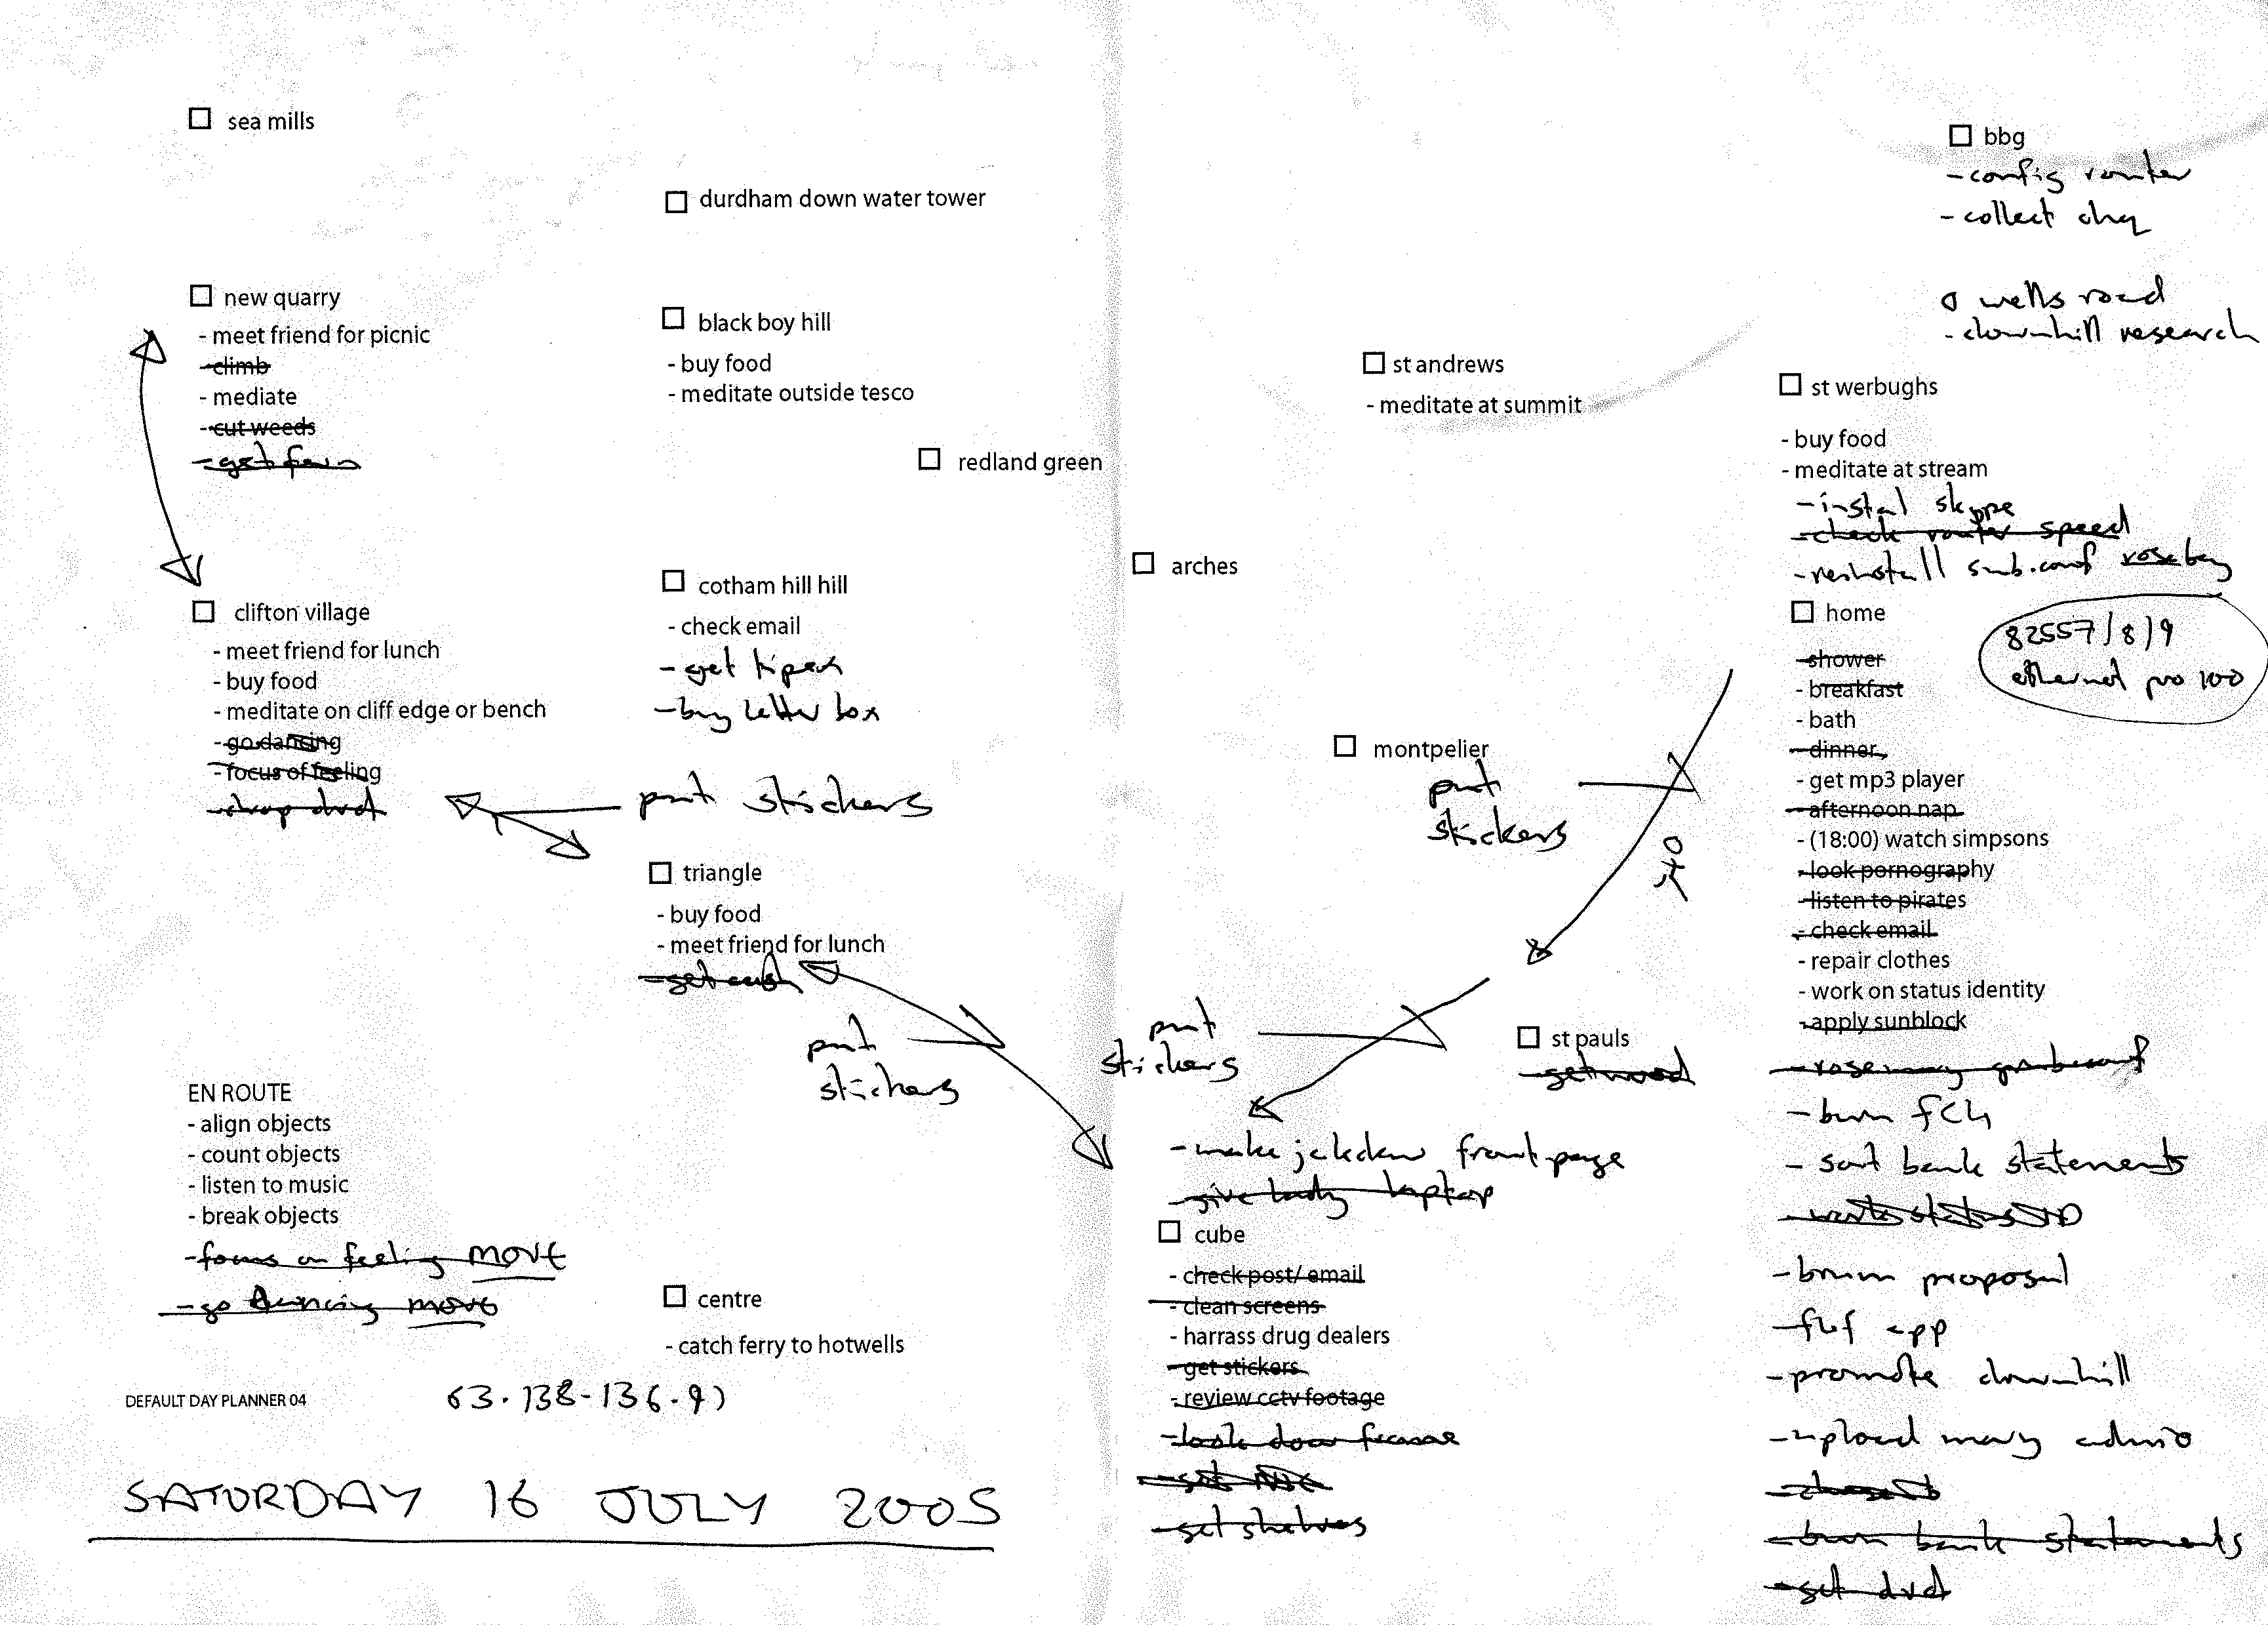 sea mills
durdham down water tower
new quarry
- meet friend for picnic
- climb
- mediate
- cut weeds
- get
black boy hill
- buy food
- meditate outside tesco
redland green
clifton village
- meet friend for lunch
- buy food
- meditate on cliff edge or bench
- go dancing
- focus of feeling
- drop dvd
cotham hill hill
- check email
- get tipex
- buy letter box
put stickers
triangle
- buy food
- meet friend for lunch
- get cash
put
stickers
EN ROUTE
- align objects
- count objects
- listen to music
- break objects
- focus on feeling MOVE
- go dancing MOVE
centre
- catch ferry to hotwells
DEFAULT DAY PLANNER 04
63.138-136.9
SATURDAY 16 JULY 2005
bbg
- config router
- collect chq
wells road
- downhill research
st andrews
- meditate at summit
st werbughs
- buy food
- meditate at stream
- instal skype
- check router speed
- reinstall
arches
montpelier
put
stickers
home
- shower
- breakfast
- bath
- dinner
- get mp3 player
- afternoon nap
- (18:00) watch simpsons
- look pornography
- listen to pirates
- check email
- repair clothes
- work on status identity
- apply sunblock
- rosemary
- burn
- sort bank statements
- brum proposal
- app
- promote downhill
- upload mary audio
- burn bank statements
- get dvd
82557/8/9
ethernet pro 100
put
stickers
st pauls
- get wood
- make front page
- give lady laptop
cube
- check post/ email
- clean screens
- harrass drug dealers
- get stickers
- review cctv footage
- look door
- get shelves